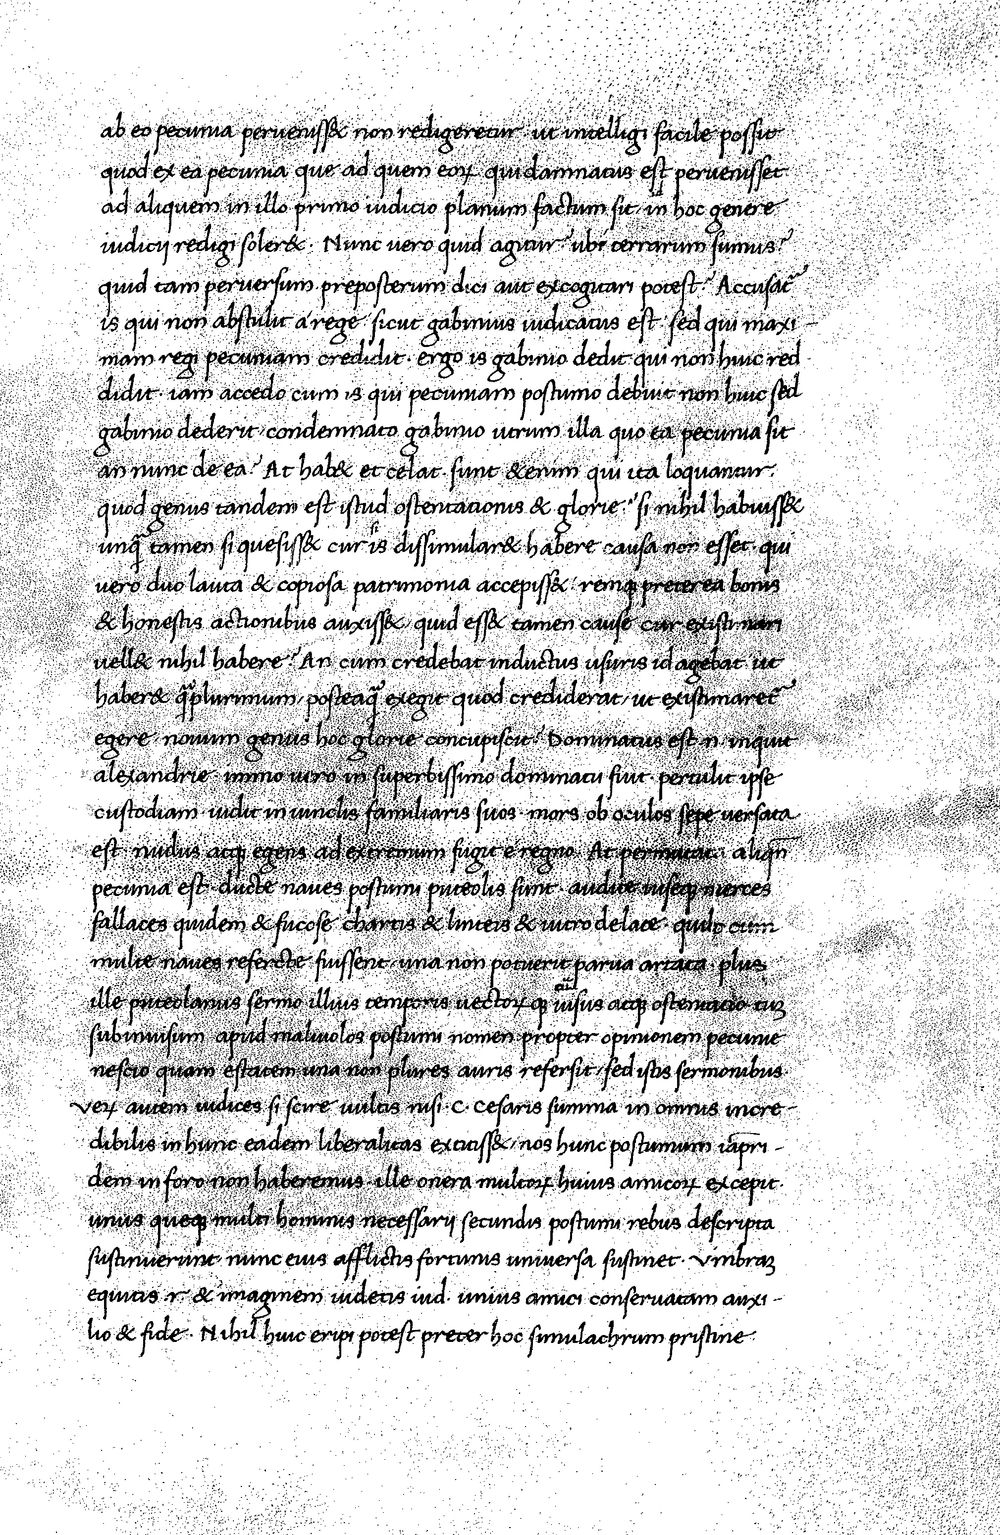 ab eo pecunia peruenisset non redigeretur ut intelligi facile possit
quod ex ea pecunia que ad quem eoꝝ qui damnatus est peruenisset
ad aliquem in illo primo iudicio planum factum sit in hoc genere
iudicij redigi soleret · Nunc vero quid agitur? ubi terrarum sumus?
quid tam peruersum preposterum dici aut excogitari potest? Accusat᷑
is qui non abstulit a rege sicut gabinius iudicatus est sed qui maxi-
mam regi pecuniam credidit · ergo is gabinio dedit qui non huic red
didit · iam accedo cum is qui pecuniam postumo debuit non huic sed
gabinio dederit condemnato gabinio utrum illa quo ea pecunia sit
an nunc de ea? At habet et celat · sunt etenim qui ita loquantur ·
quod genus tandem est istud ostentationis & glorie? si nihil habuisset
unq̃ tamen si quesisset cur is dissimularet habere causa non esset · qui
vero duo lauta & copiosa patrimonia accepisset remqꝫ preterea bonis
& honestis actionibus auxisset quid esset tamen cause cur existimari
vellet nihil habere? An cum credebat inductus usuris id agebat ut
haberet q̃plurimum / posteaq̃ exegit quod crediderat / ut existimaret᷑
egere · nouum genus hoc glorie concupiscit? Dominatus est n. inquit
alexandrie immo uiro in superbissimo dominatu fuit · pertulit ipse
custodiam · uidit in uinclis familiaris suos · mors ob oculos sepe uersata
est · nudus atqꝫ egens ad extremum fugit e regno · At permutat · aliqñ
pecunia est · ducte naues postumi puteolis sunt · audite uiseqꝫ merces
fallaces quidem & fucose chartis & linteis & uitro delate · quibꝫ cum
multe naues referte fuissent una non potuerit parua · plus
ille puteolanus sermo illius temporis uectoꝝqꝫ uisus atqꝫ ostentatio tuꝫ
subinuisum apud maliuolos postumi nomen propter opinionem pecunie
nescio quam estatem una non plures auris refersit / sed istis sermonibus ·
Veꝝ autem iudices si scire uultis nisi · C · Cesaris summa in omnis incre-
dibilis in hunc eadem liberalitas extitisset / nos hunc postumum iãpri-
dem in foro non haberemus · ille onera multoꝝ huius amicoꝝ excepit ·
unus queqꝫ multi hominis necessarij secundis postumi rebus descripta
sustinuerunt nunc eius afflictis fortunis uniuersa sustinet · Vmbraꝫ
equitis r · & imaginem uidetis iud · unius amici conseruatam auxi-
lio & fide · Nihil huic eripi potest preter hoc simulachrum pristine